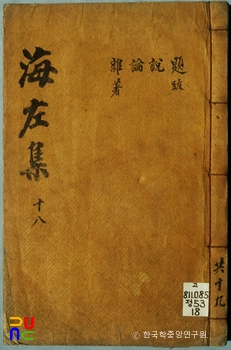 海左集
十八
題跋
說
論
雜著
共十九
고
811.085
정53
18
ⓒ 한국학중앙연구원